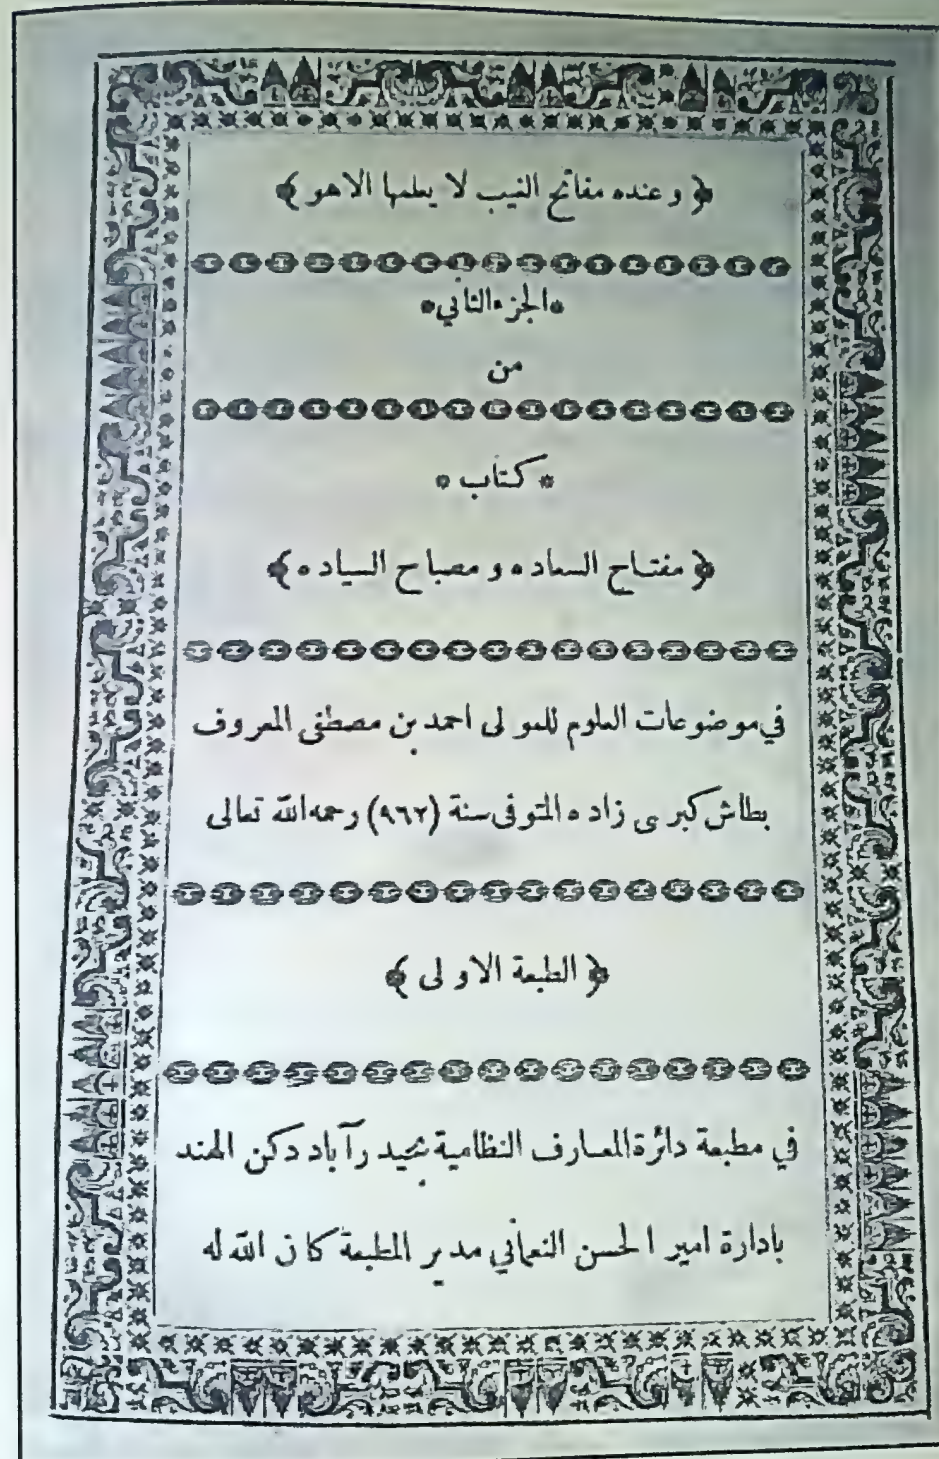 ﴿ وعنده مفاتح الغيب لا يعلمها الا هو ﴾
*الجزء الثاني*
من
* كتاب *
﴿ مفتاح السعاده و مصباح السياده ﴾
في موضوعات العلوم للمولى احمد بن مصطفى المعروف
بطاش كبرى زاده المتوفى سنة (٩٦٢) رحمه الله تعالى
﴿ الطبعة الاولى ﴾
في مطبعة دائرة المعارف النظامية بحيدرآباد دكن الهند
بادارة امير الحسن النعماني مدير المطبعة كان الله له